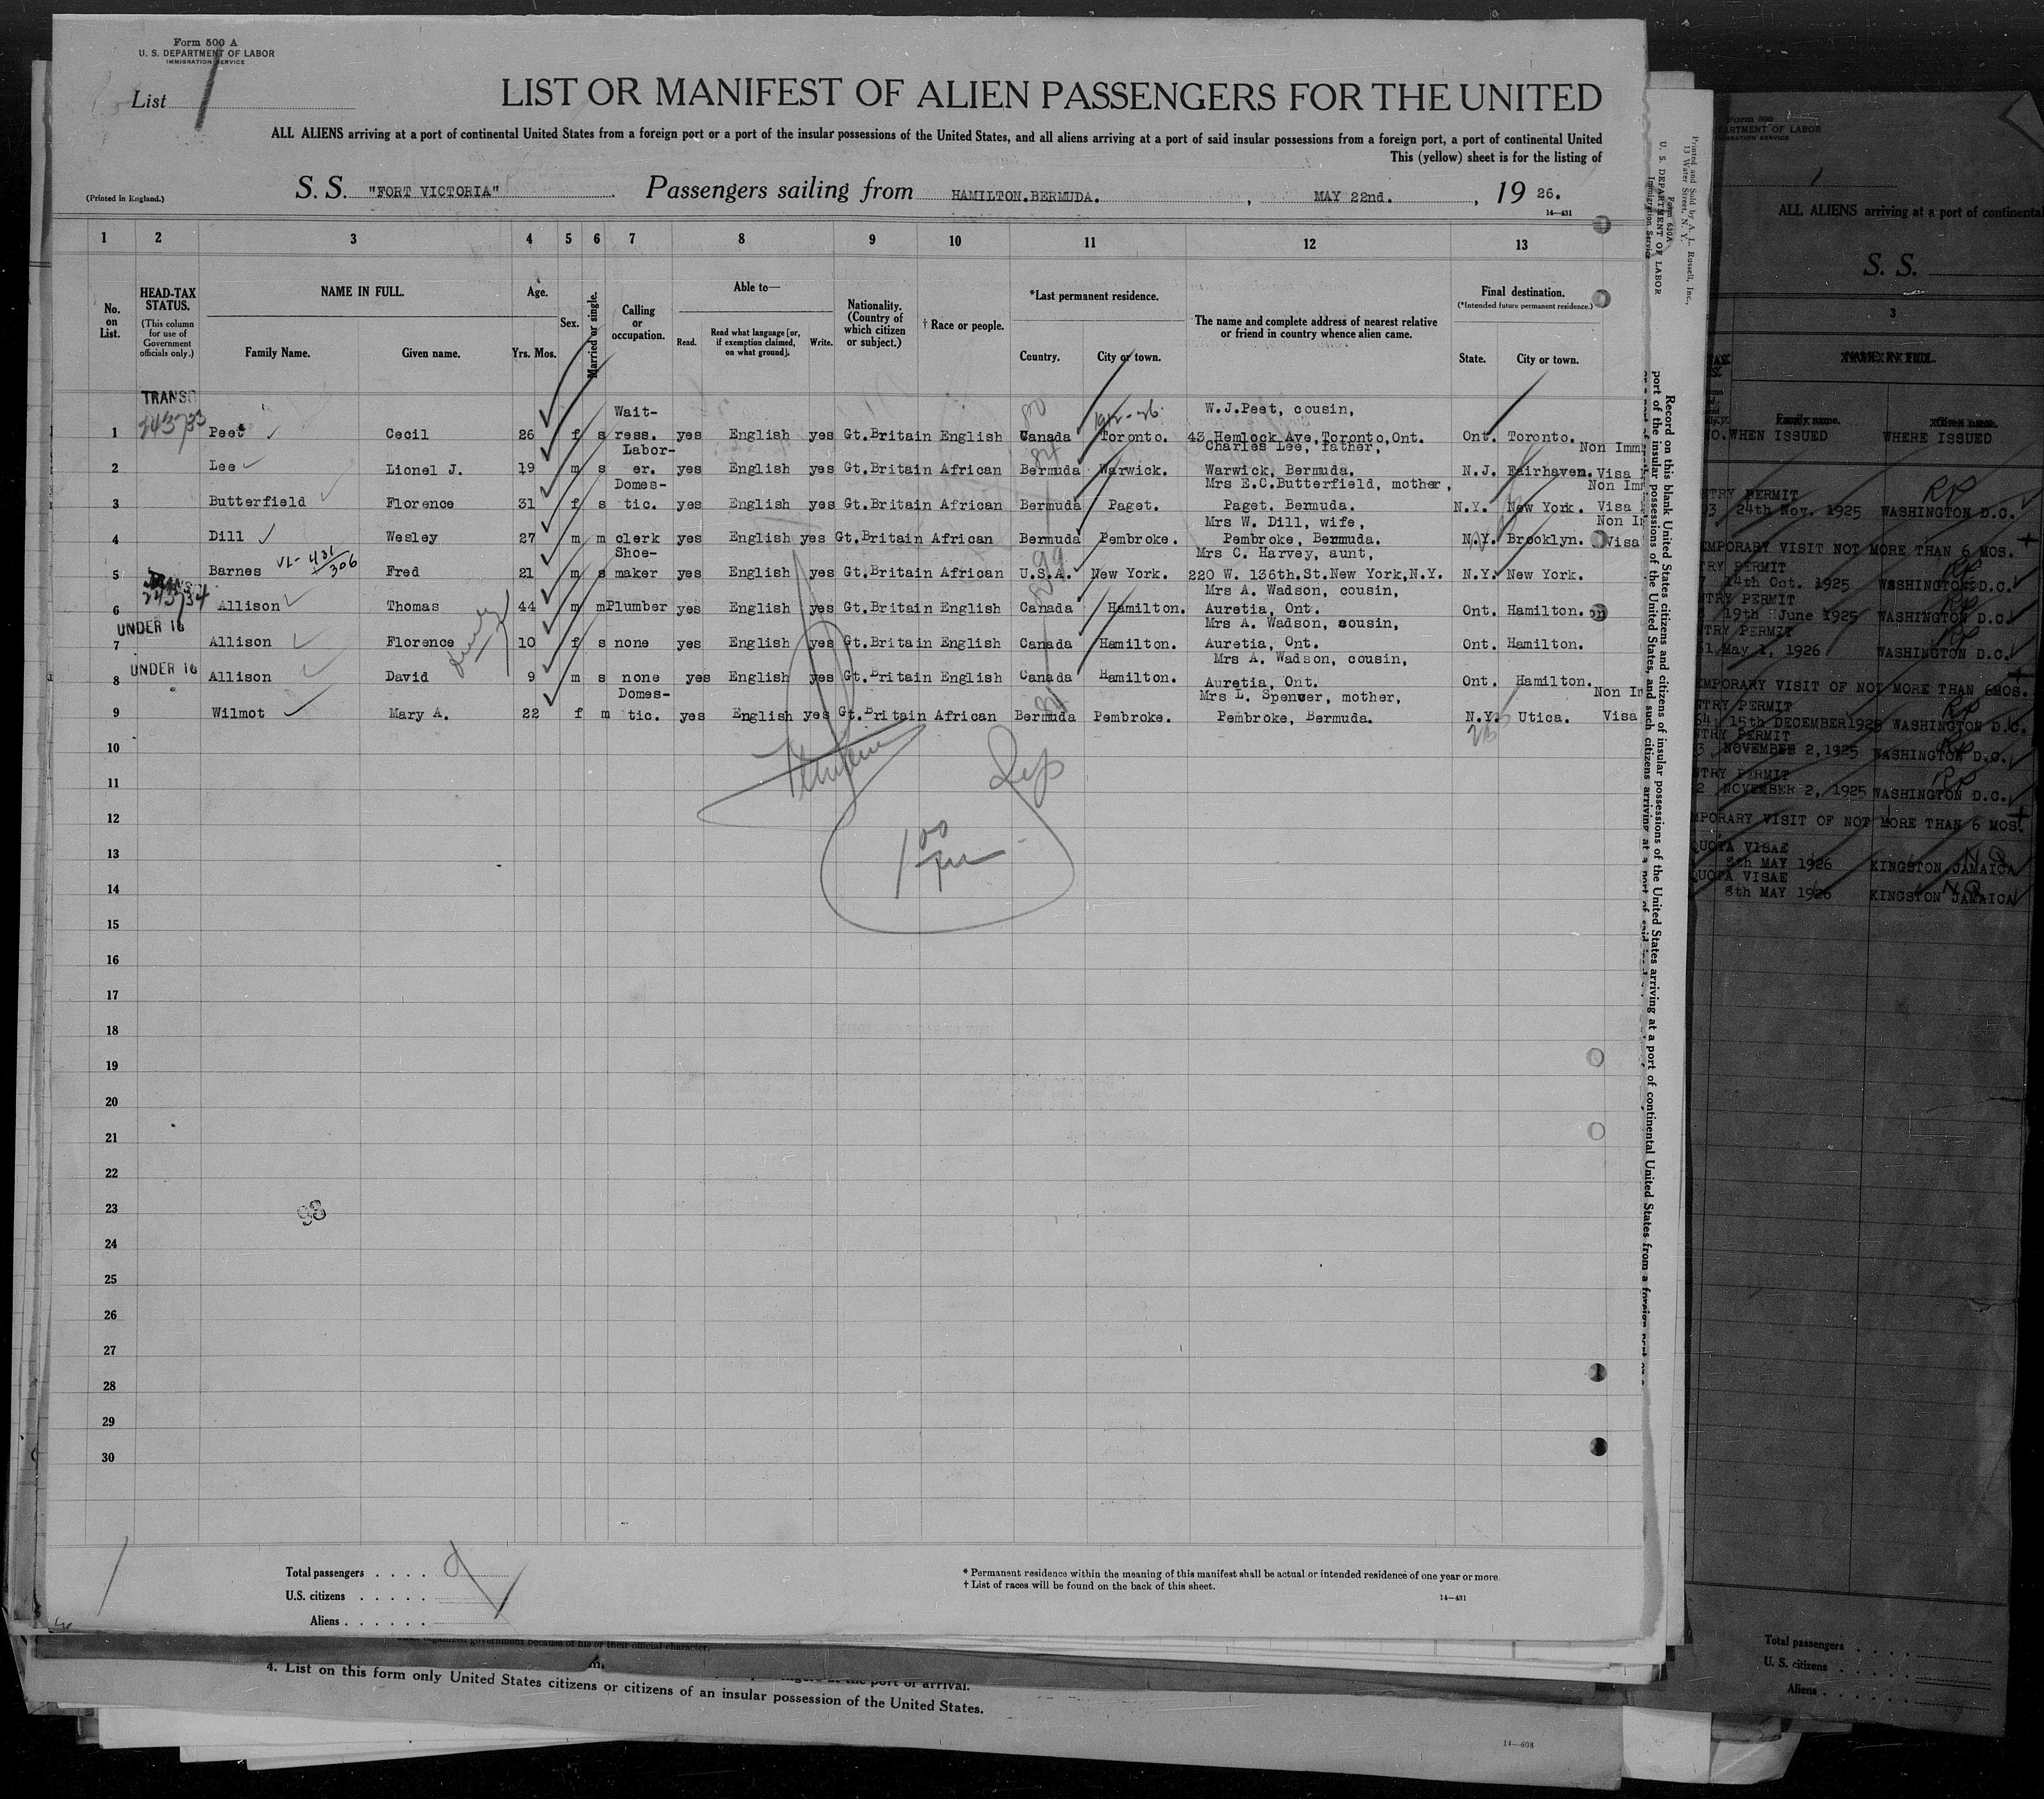 Form 500 A
U. S. DEPARTMENT OF LABOR
IMMIGRATION SERVICE
List 1
LIST OR MANIFEST OF ALIEN PASSENGERS FOR THE UNITED
ALL ALIENS arriving at a port of continental United States from a foreign port or a port of the insular possessions of the United States, and all aliens arriving at a port of said insular possessions from a foreign port, a port of continental United
This (yellow) sheet is for the listing of
(Printed in England.)
S. S. "FORT VICTORIA" Passengers sailing from HAMILTON.BERMUDA. , MAY 22nd. , 19 26.
14—431
1 2 3 4 5 6 7 8 9 10 11 12 13
No. on List.
HEAD-TAX STATUS.
(This column for use of Government officials only.)
NAME IN FULL.
Family Name. Given name.
Age.
Yrs. Mos.
Sex.
Married or single.
Calling or occupation.
Able to—
Read. Read what language [or, if exemption claimed, on what ground]. Write.
Nationality. (Country of which citizen or subject.)
† Race or people.
*Last permanent residence.
Country. City or town.
The name and complete address of nearest relative or friend in country whence alien came.
Final destination.
(*Intended future permanent residence.)
State. City or town.
TRANS
243733
Wait- W.J.Peet, cousin,
1 Peet Cecil 26 f s ress. yes English yes Gt.Britain English Canada Toronto. 43 Hemlock Ave,Toronto,Ont. Ont. Toronto.
Labor- Charles Lee, father, Non Imm
2 Lee Lionel J. 19 m s er. yes English yes Gt.Britain African Bermuda Warwick. Warwick, Bermuda. N.J. Fairhaven. Visa
Domes- Mrs E.C.Butterfield, mother, Non Im
3 Butterfield Florence 31 f s tic. yes English yes Gt.Britain African Bermuda Paget. Paget. Bermuda. N.Y. New York. Visa
Mrs W. Dill, wife, Non I
4 Dill Wesley 27 m m clerk yes English yes Gt.Britain African Bermuda Pembroke. Pembroke, Bermuda. N.Y. Brooklyn. Visa
VL- 431/306
Shoe- Mrs C. Harvey, aunt,
5 Barnes Fred 21 m s maker yes English yes Gt.Britain African U.S.A. New York. 220 W. 136th.St.New York,N.Y. N.Y. New York.
243734
Mrs A. Wadson, cousin,
6 Allison Thomas 44 m m Plumber yes English yes Gt.Britain English Canada Hamilton. Auretia, Ont. Ont. Hamilton.
UNDER 16
Mrs A. Wadson, cousin,
7 Allison Florence 10 f s none yes English yes Gt.Britain English Canada Hamilton. Auretia, Ont. Ont. Hamilton.
UNDER 16
Mrs A. Wadson, cousin,
8 Allison David 9 m s none yes English yes Gt.Britain English Canada Hamilton. Auretia, Ont. Ont. Hamilton.
Domes- Mrs L. Spenver, mother, Non I
9 Wilmot Mary A. 22 f m tic. yes English yes Gt.Britain African Bermuda Pembroke. Pembroke, Bermuda. N.Y. Utica. Visa
10
11
12
13
14
15
16
17
18
19
20
21
22
23
24
25
26
27
28
29
30
98
Total passengers . . . . 9
U.S. citizens . . . . .
Aliens . . . . . .
* Permanent residence within the meaning of this manifest shall be actual or intended residence of one year or more.
† List of races will be found on the back of this sheet.
14—431
4. List on this form only United States citizens or citizens of an insular possession of the United States.
14—608
Printed and Sold by A. L. Russell, Inc.,
13 Water Street, N. Y.
Form 630A
U. S. DEPARTMENT OF LABOR
Immigration Service
Record on this blank United States citizens and citizens of insular possessions of the United States arriving at a port of continental United States from a foreign port or a
port of the insular possessions of the United States, and such citizens arriving at a port of said
Form 500
ARTMENT OF LABOR
GRATION SERVICE
ALL ALIENS arriving at a port of continental
S. S.
3
NAME IN FULL.
Family name. Given name.
NO. WHEN ISSUED WHERE ISSUED
NTRY PERMIT
24th Nov. 1925 WASHINGTON D.C.
EMPORARY VISIT NOT MORE THAN 6 MOS.
TRY PERMIT
14th Oct. 1925 WASHINGTON D.C.
NTRY PERMIT
19th June 1925 WASHINGTON D.C.
TRY PERMIT
May 1, 1926 WASHINGTON D.C.
EMPORARY VISIT OF NOT MORE THAN 6MOS.
NTRY PERMIT
15th DECEMBER 1925 WASHINGTON D.C.
NTRY PERMIT
NOVEMBER 2,1925 WASHINGTON D.C.
NTRY PERMIT
2 NOVEMBER 2, 1925 WASHINGTON D.C.
MPORARY VISIT OF NOT MORE THAN 6 MOS.
QUOTA VISAE
8th MAY 1926 KINGSTON JAMAICA
QUOTA VISAE
8th MAY 1926 KINGSTON JAMAICA
Total passengers . . . .
U. S. citizens . . . . .
Aliens . . . . . .